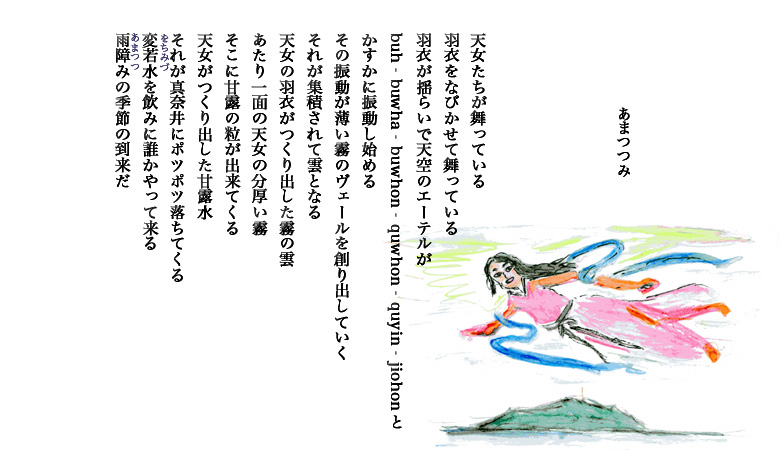 あまつつみ
天女たちが舞っている
羽衣をなびかせて舞っている
羽衣が揺らいで天空のエーテルが
buh - buwha - buwhon - quwhon - quyin - jiohonと
かすかに振動し始める
その振動が薄い霧のヴェールを創り出していく
それが集積されて雲となる
天女の羽衣がつくり出した霧の雲
あたり一面の天女の分厚い霧
そこに甘露の粒が出来てくる
天女がつくり出した甘露水
それが真奈井にポツポツ落ちてくる
をちみづ
変若水を飲みに誰かやって来る
あまつつ
雨障みの季節の到来だ